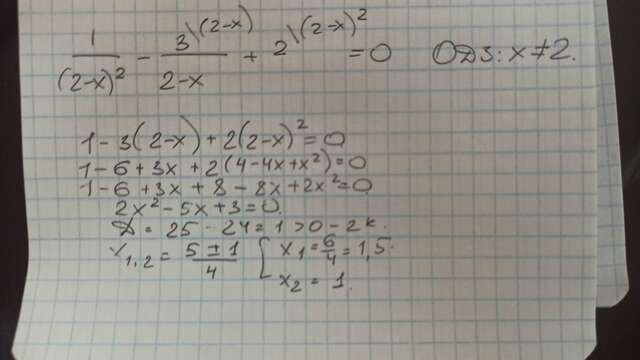 1/(2-x)² - 3\(2-x)/(2-x) + 2\(2-x)² = 0 ОДЗ: x≠2.
1-3(2-x)+2(2-x)²=0
1-6+3x+2(4-4x+x²)=0
1-6+3x+8-8x+2x²=0
2x²-5x+3=0.
Д = 25 - 24 = 1 > 0 - 2к.
x₁,₂ = (5±1)/4 [ x₁ = 6/4 = 1,5.
x₂ = 1.